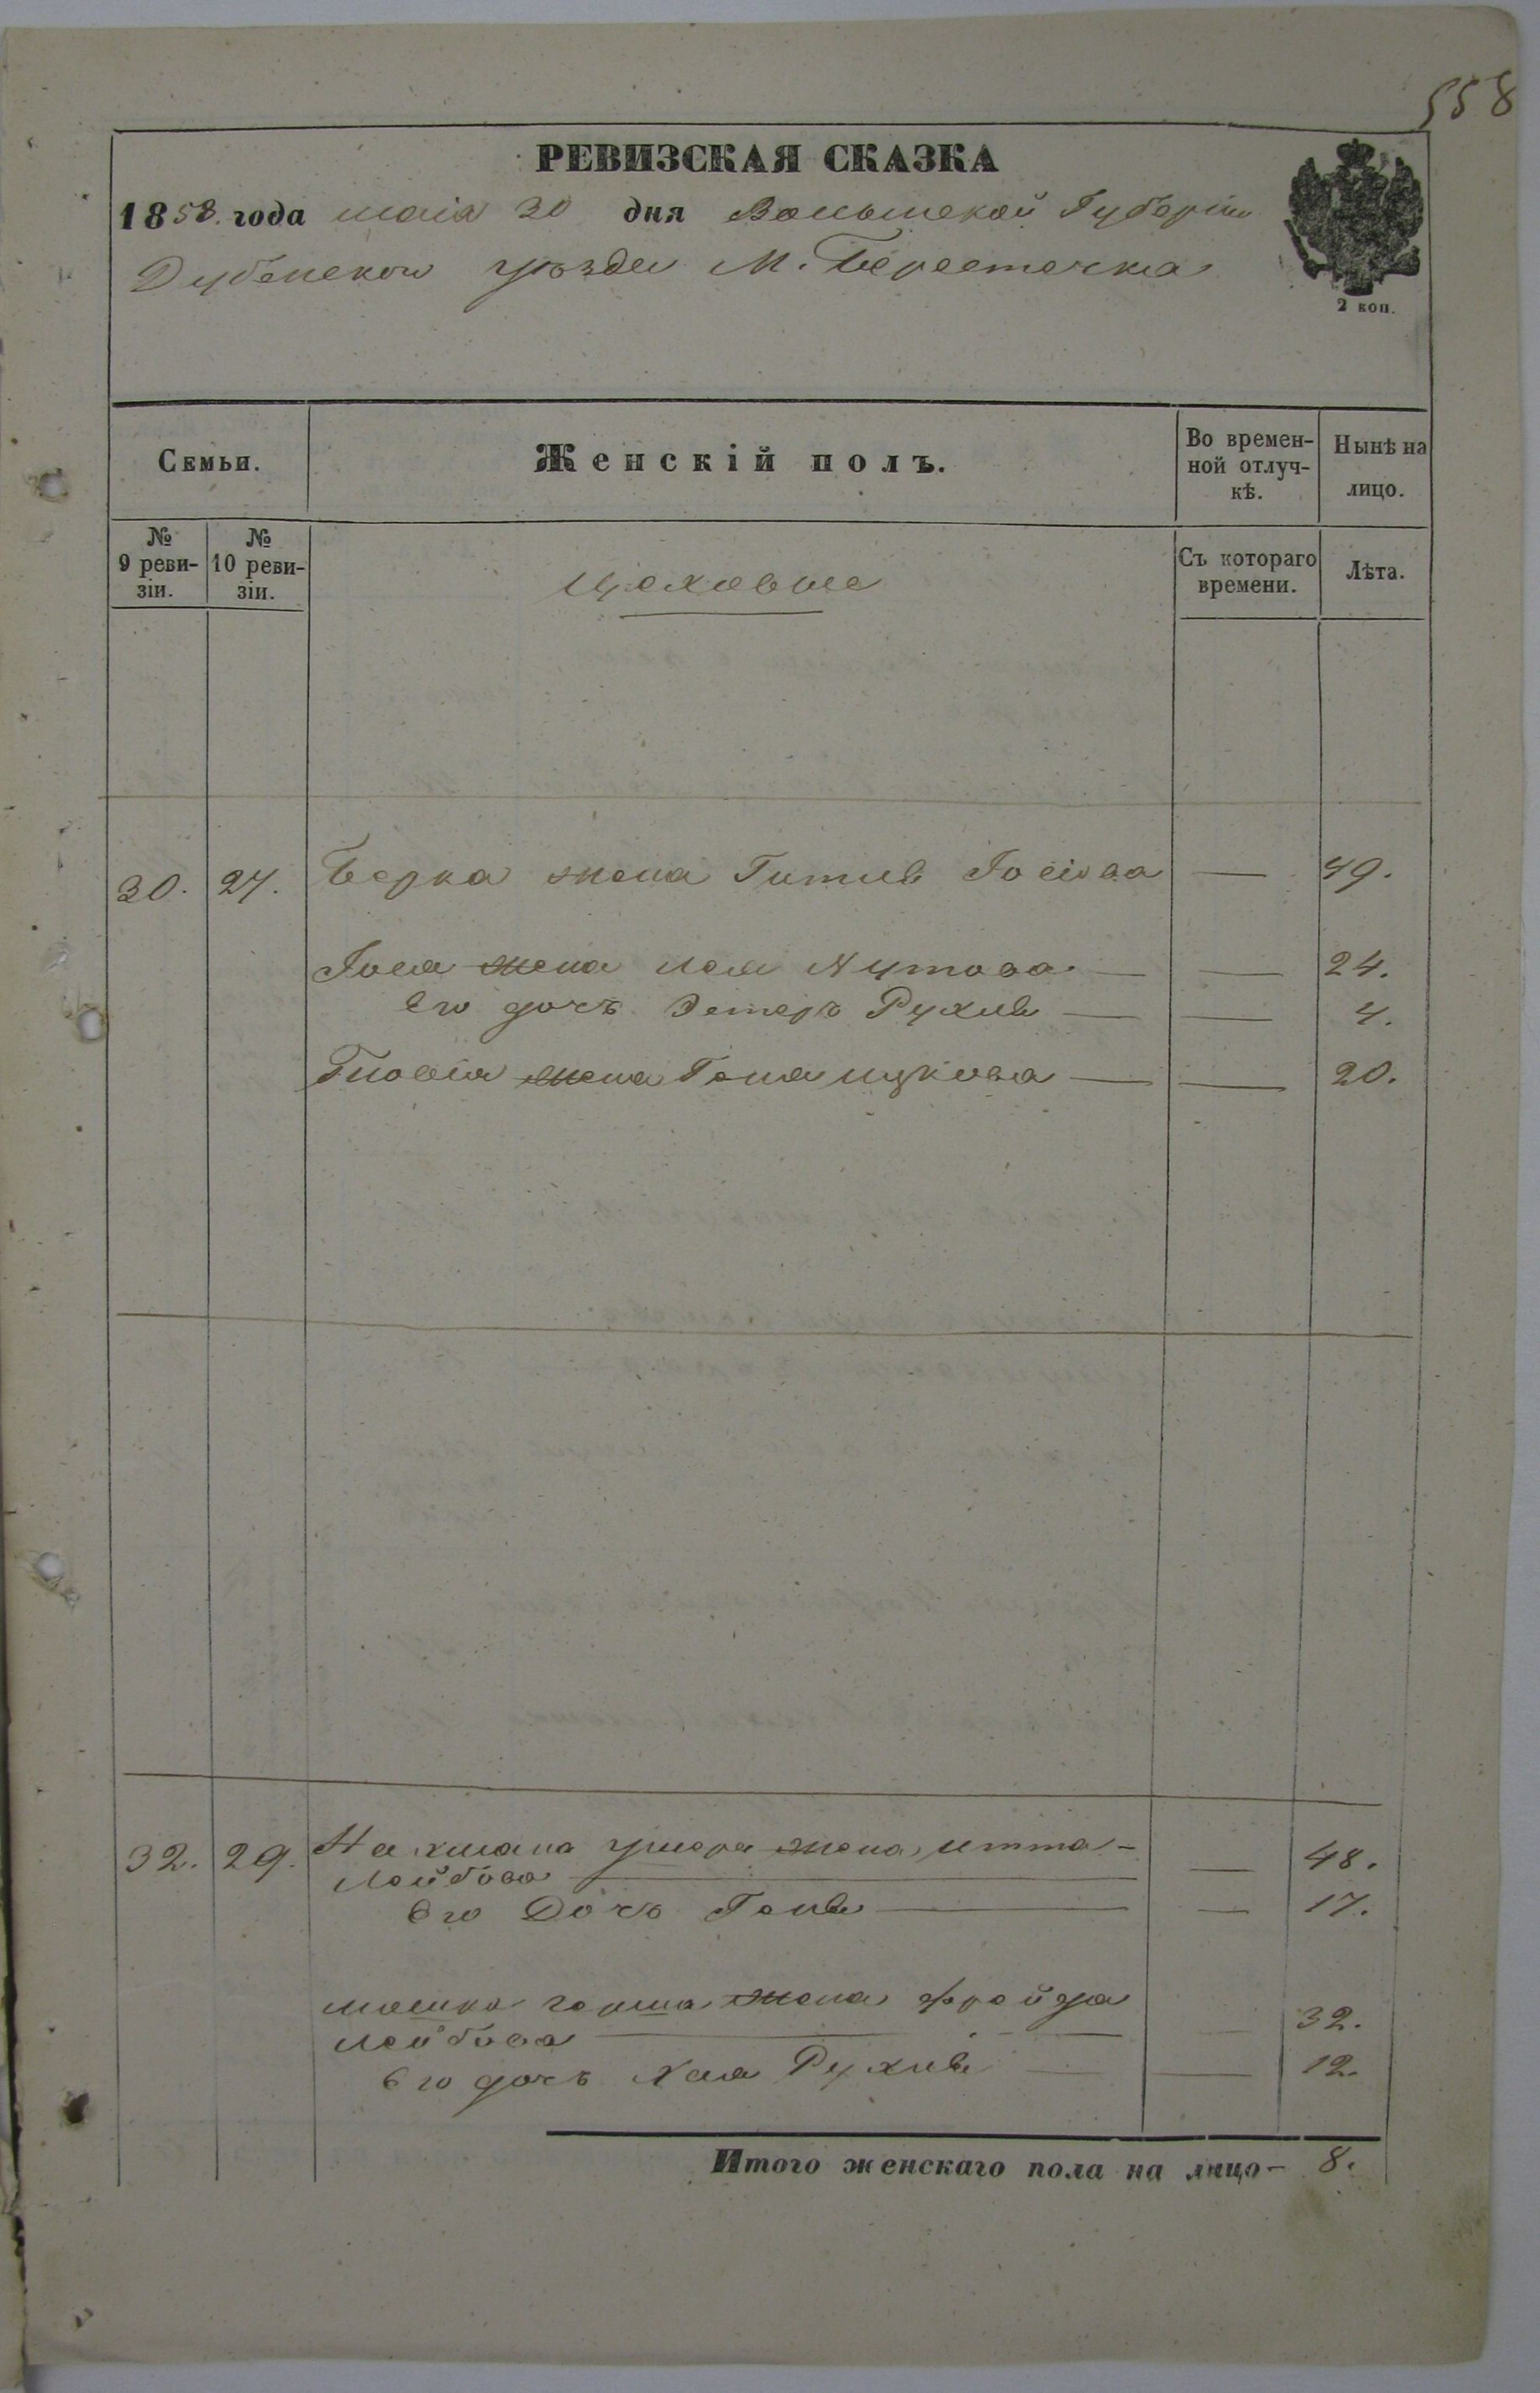 558
РЕВИЗСКАЯ СКАЗКА
1858. года маія 30 дня Волынской Губерніи
Дубенскою уѣзда М. Берестечка
2 коп.
Семьи.
Женскій полъ.
Во времен-
ной отлуч-
кѣ.
Нынѣ на
лицо.
№
9 реви-
зіи.
№
10 реви-
зіи.
Цеховые
Съ котораго
времени.
Лѣта.
30. 27. Берка жена Гитля Іосіова — 49.
Іося жена Лея — — 24.
Его дочь Эстеръ Рухля — — 4.
жена Геня Ицкова — — 20.
32. 29. Нахмана умера жена Итта - — 48.
Лейбова
Его Дочь Геня — — 17.
Мошка Герша жена Фрейда 32.
Лейбова —
Его дочь Хая Рухля — — 12.
Итого женскаго пола на лицо - 8.